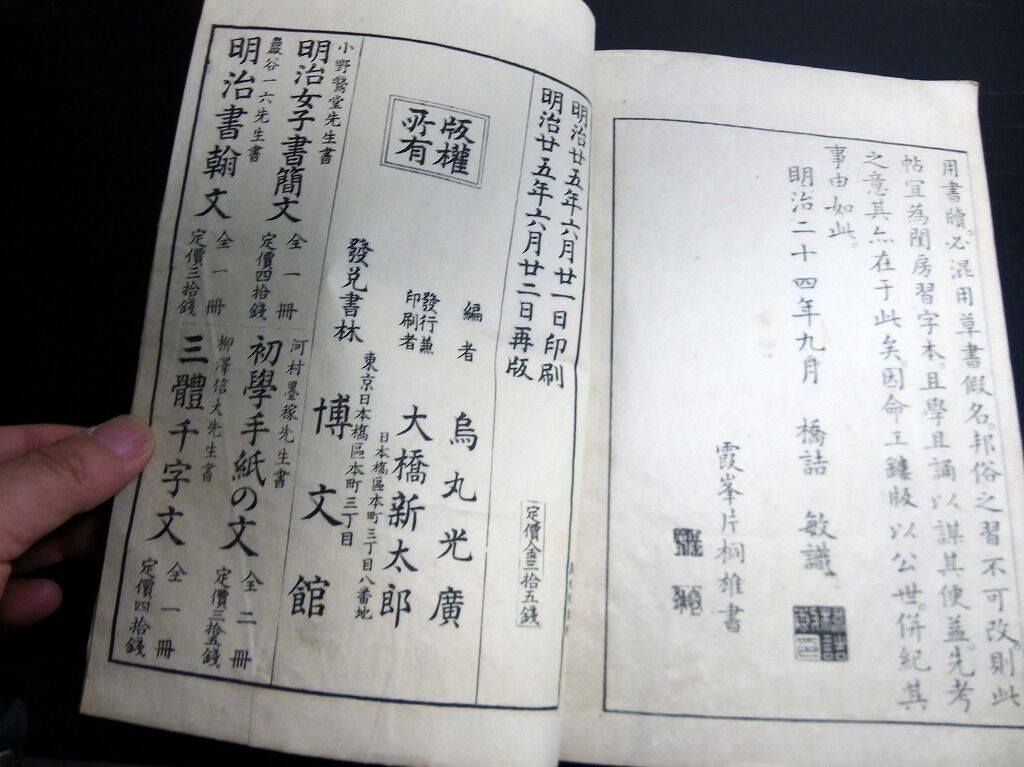 用書牘。必混用草書假名。邦俗之習不可改。則此
帖宜為閨房習字本。且學且誦。以謀其便益。先考
之意其亦在于此矣。因命工鏤版以公世。併紀其
事由如此。
明治二十四年九月 橋詰 敏識
霞峯片桐雄書
明治廿五年六月廿一日印刷
明治廿五年六月廿二日再版
定價金三拾五錢
版權所有
編者 烏丸光廣
發行兼印刷者 大橋新太郎
日本橋區本町三丁目八番地
東京日本橋區本町三丁目
發兌書林 博文館
小野鵞堂先生書
明治女子書簡文 全一冊 定價四拾錢
巖谷一六先生書
明治書翰文 全一冊 定價三拾錢
河村墨稼先生書
初學手紙の文 全二冊 定價三拾五錢
柳澤信大先生書
三體千字文 全一冊 定價四拾錢